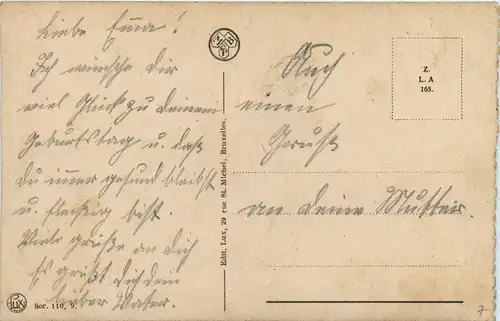 Liebe Erna!
Ich wünsche Dir
viel Glück zu Deinem
Geburtstag u. daß
Du immer gesund bleibst
u. fleißig bist.
Viele grüße an Dich
Es grüßt Dich Dein
lieber Vater.
Auch
einen
Gruß
an Deine Mutter.
MBP
Z.
L. A
165.
Edit. Lux, 29 rue St. Michel, Bruxelles.
Lux
Ser. 110, 5.
7